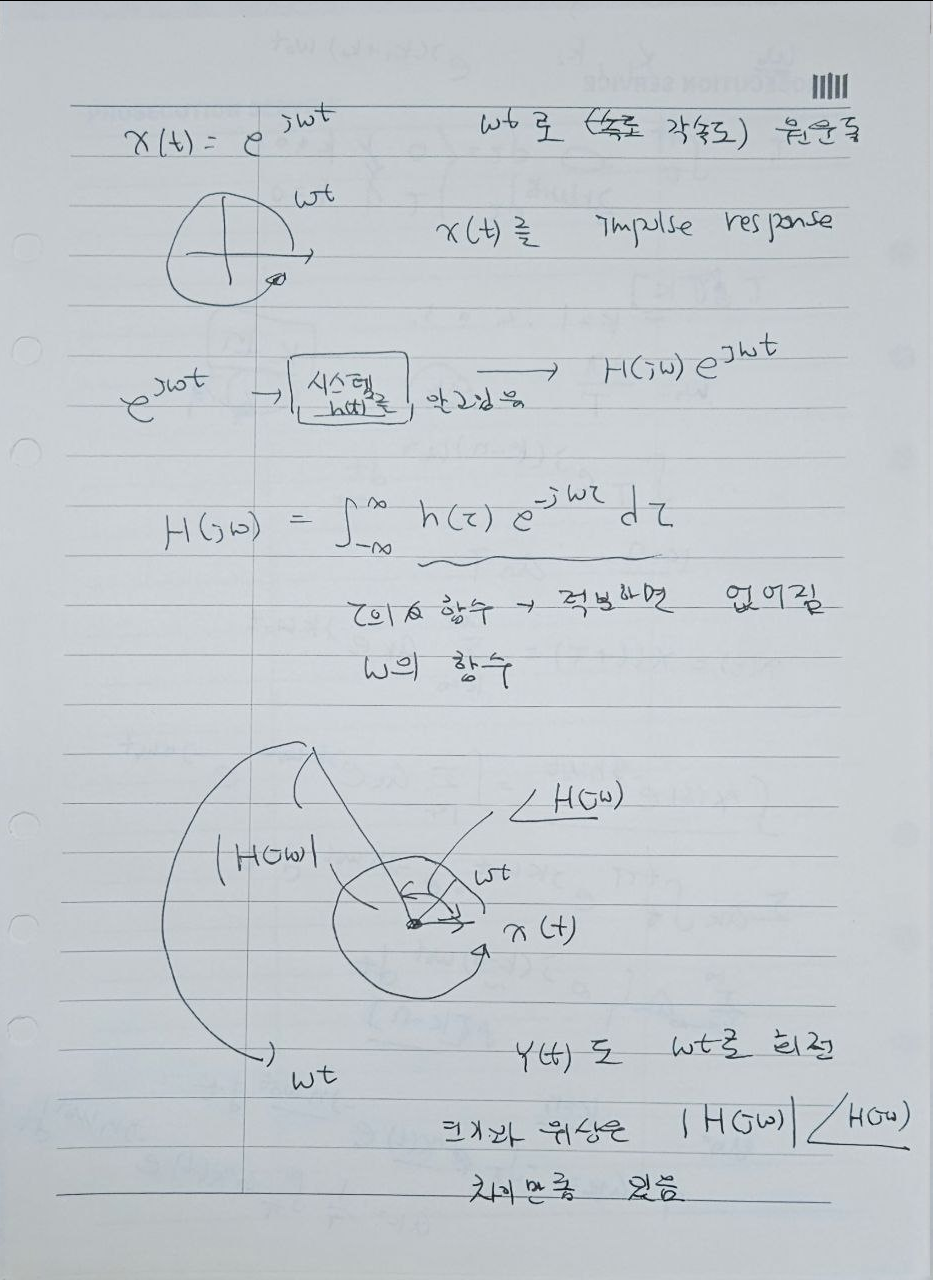 x(t) = e^{jwt} wt로 (속도 각속도) 원운동
wt
x(t)를 impulse response
e^{jwt} → 시스템 h(t)를 알고있음 → H(jw) e^{jwt}
H(jw) = ∫_{-∞}^{∞} h(τ) e^{-jwτ} dτ
τ의 함수 → 적분하면 없어짐
w의 함수
∠H(jw)
|H(jw)|
wt
x(t)
Y(t)도 wt로 회전
wt
크기와 위상은 |H(jw)| ∠H(jw)
차이만큼 있음